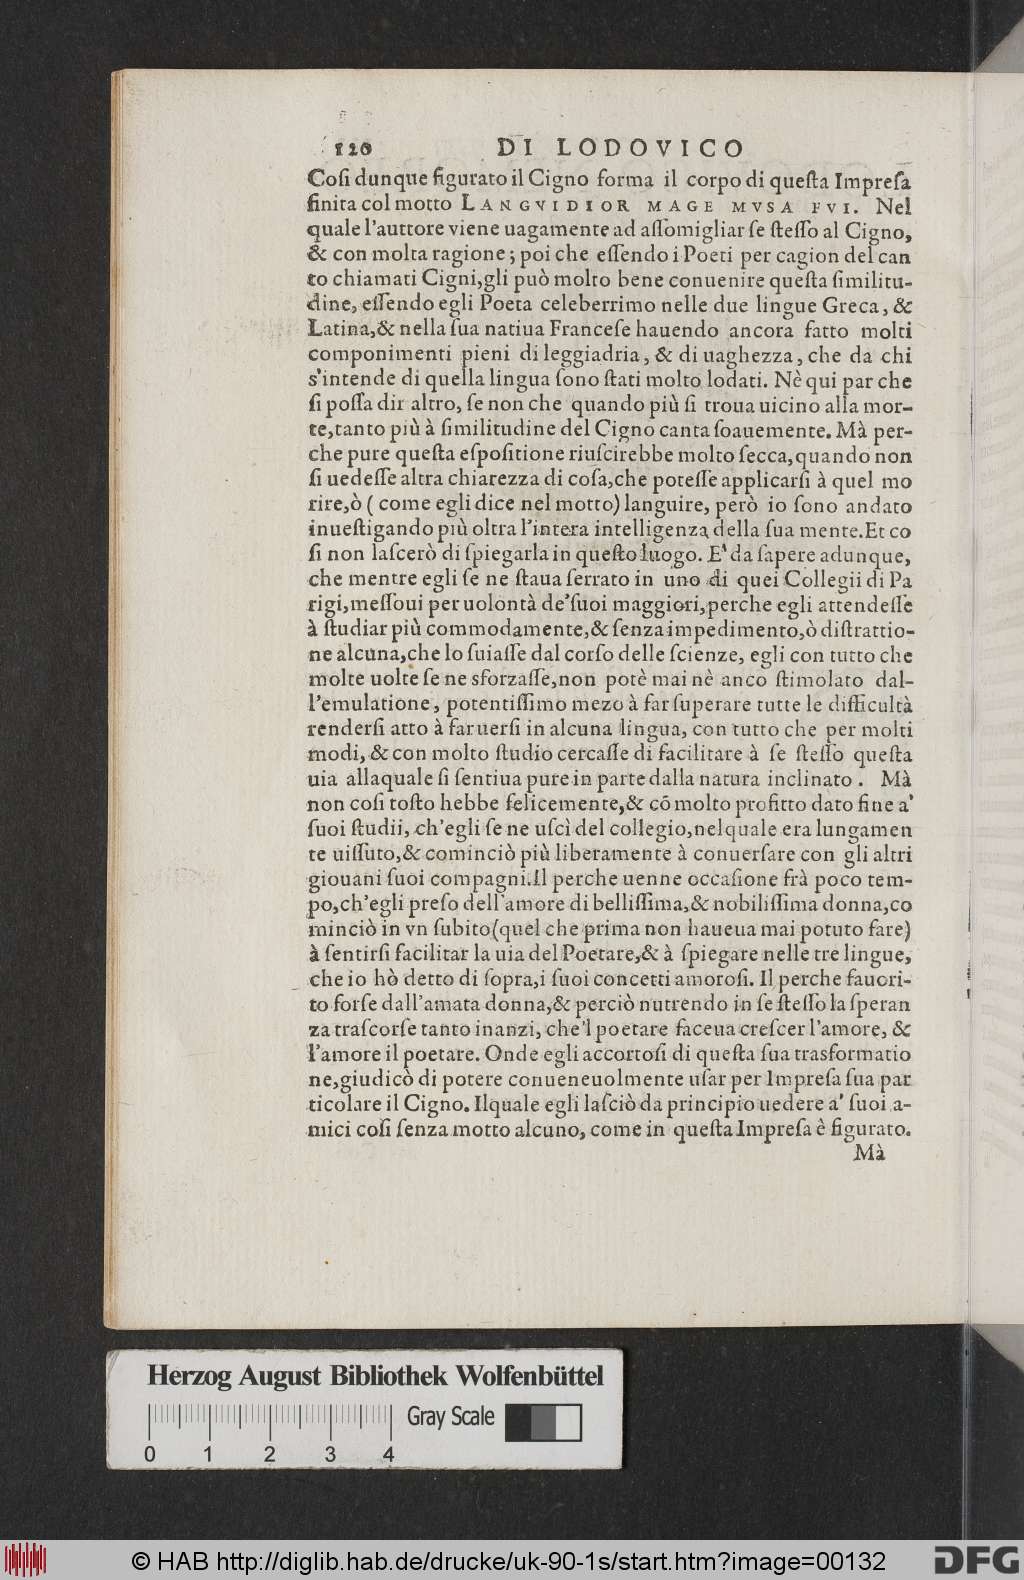 120 DI LODOVICO
Coſi dunque figurato il Cigno forma il corpo di queſta Impreſa
finita col motto LANGVIDIOR MAGE MVSA FVI. Nel
quale l'auttore viene uagamente ad aſſomigliar ſe ſteſſo al Cigno,
& con molta ragione; poi che eſſendo i Poeti per cagion del can
to chiamati Cigni,gli può molto bene conuenire queſta ſimilitu-
dine, eſſendo egli Poeta celeberrimo nelle due lingue Greca, &
Latina,& nella ſua natiua Franceſe hauendo ancora fatto molti
componimenti pieni di leggiadria, & di uaghezza, che da chi
s'intende di quella lingua ſono ſtati molto lodati. Nè qui par che
ſi poſſa dir altro, ſe non che quando più ſi troua uicino alla mor-
te,tanto più à ſimilitudine del Cigno canta ſoauemente. Mà per-
che pure queſta eſpoſitione riuſcirebbe molto ſecca,quando non
ſi uedeſſe altra chiarezza di coſa,che poteſſe applicarſi à quel mo
rire,ò ( come egli dice nel motto) languire, però io ſono andato
inueſtigando più oltra l'intera intelligenza della ſua mente.Et co
ſi non laſcerò di ſpiegarla in queſto luogo. E' da ſapere adunque,
che mentre egli ſe ne ſtaua ſerrato in uno di quei Collegii di Pa
rigi,meſſoui per uolontà de'ſuoi maggiori,perche egli attendeſſe
à ſtudiar più commodamente,& ſenza impedimento,ò diſtrattio-
ne alcuna,che lo ſuiaſſe dal corſo delle ſcienze, egli con tutto che
molte uolte ſe ne sforzaſſe,non potè mai nè anco ſtimolato dal-
l'emulatione, potentiſſimo mezo à far ſuperare tutte le difficultà
renderſi atto à far uerſi in alcuna lingua, con tutto che per molti
modi, & con molto ſtudio cercaſſe di facilitare à ſe ſteſſo queſta
uia allaquale ſi ſentiua pure in parte dalla natura inclinato. Mà
non coſi toſto hebbe felicemente,& cõ molto profitto dato fine a'
ſuoi ſtudii, ch'egli ſe ne uſcì del collegio,nel quale era lungamen
te uiſſuto,& cominciò più liberamente à conuerſare con gli altri
giouani ſuoi compagni.Il perche uenne occaſione frà poco tem-
po,ch'egli preſo dell'amore di belliſſima,& nobiliſſima donna,co
minciò in vn ſubito(quel che prima non haueua mai potuto fare)
à ſentirſi facilitar la uia del Poetare,& à ſpiegare nelle tre lingue,
che io hò detto di ſopra,i ſuoi concetti amoroſi. Il perche fauori-
to forſe dall'amata donna,& perciò nutrendo in ſe ſteſſo la ſperan
za traſcorſe tanto inanzi, che'l poetare faceua creſcer l'amore, &
l'amore il poetare. Onde egli accortoſi di queſta ſua trasformatio
ne,giudicò di potere conueneuolmente uſar per Impreſa ſua par
ticolare il Cigno. Ilquale egli laſciò da principio uedere a' ſuoi a-
mici coſi ſenza motto alcuno, come in queſta Impreſa è figurato.
Mà
Herzog August Bibliothek Wolfenbüttel
Gray Scale
0 1 2 3 4
© HAB http://diglib.hab.de/drucke/uk-90-1s/start.htm?image=00132
DFG